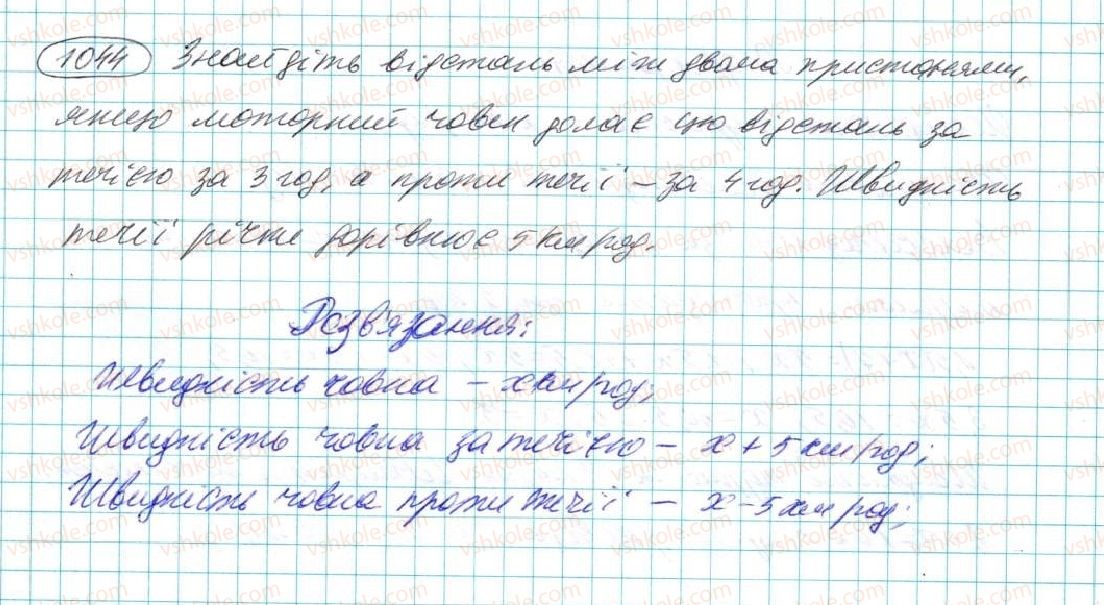 1044 Знайдіть відстань між двома пристанями,
якщо моторний човен долає цю відстань за
течією за 3 год, а проти течії – за 4 год. Швидкість
течії річки дорівнює 5 км/год.
Розв'язання:
Швидкість човна – x км/год;
Швидкість човна за течією – x + 5 км/год;
Швидкість човна проти течії – x – 5 км/год;